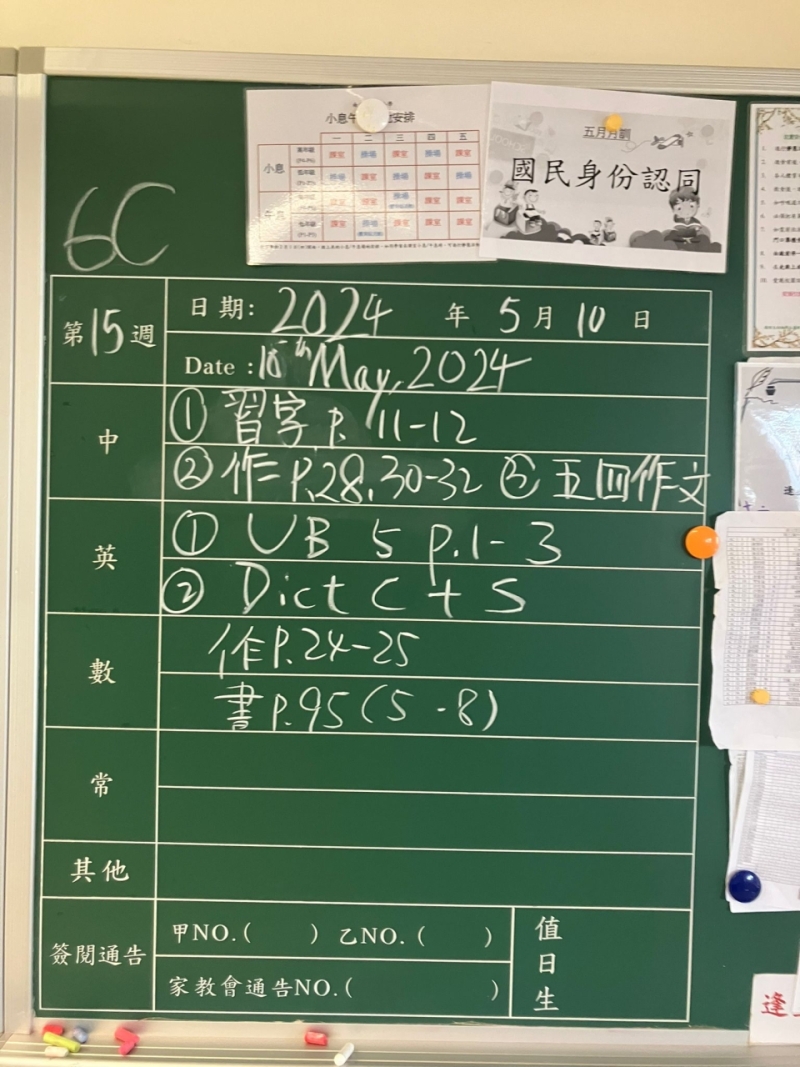 小息
安排
一 二 三 四 五
小息
課室 操場 課室 操場 課室
操場 課室 操場 課室 操場
課室 操場 課室 課室 課室
五月月訓
國民身份認同
6C
第15週
日期: 2024 年 5 月 10 日
Date : 10th May, 2024
中
① 習字 P. 11-12
② 作二 P.28, 30-32 ③ 五四作文
英
① UB 5 p.1-3
② Dict C + S
數
作P.24-25
書P.95(5-8)
常
其他
簽閱通告
甲NO.( ) 乙NO.( )
家教會通告NO.( )
值日生
逢